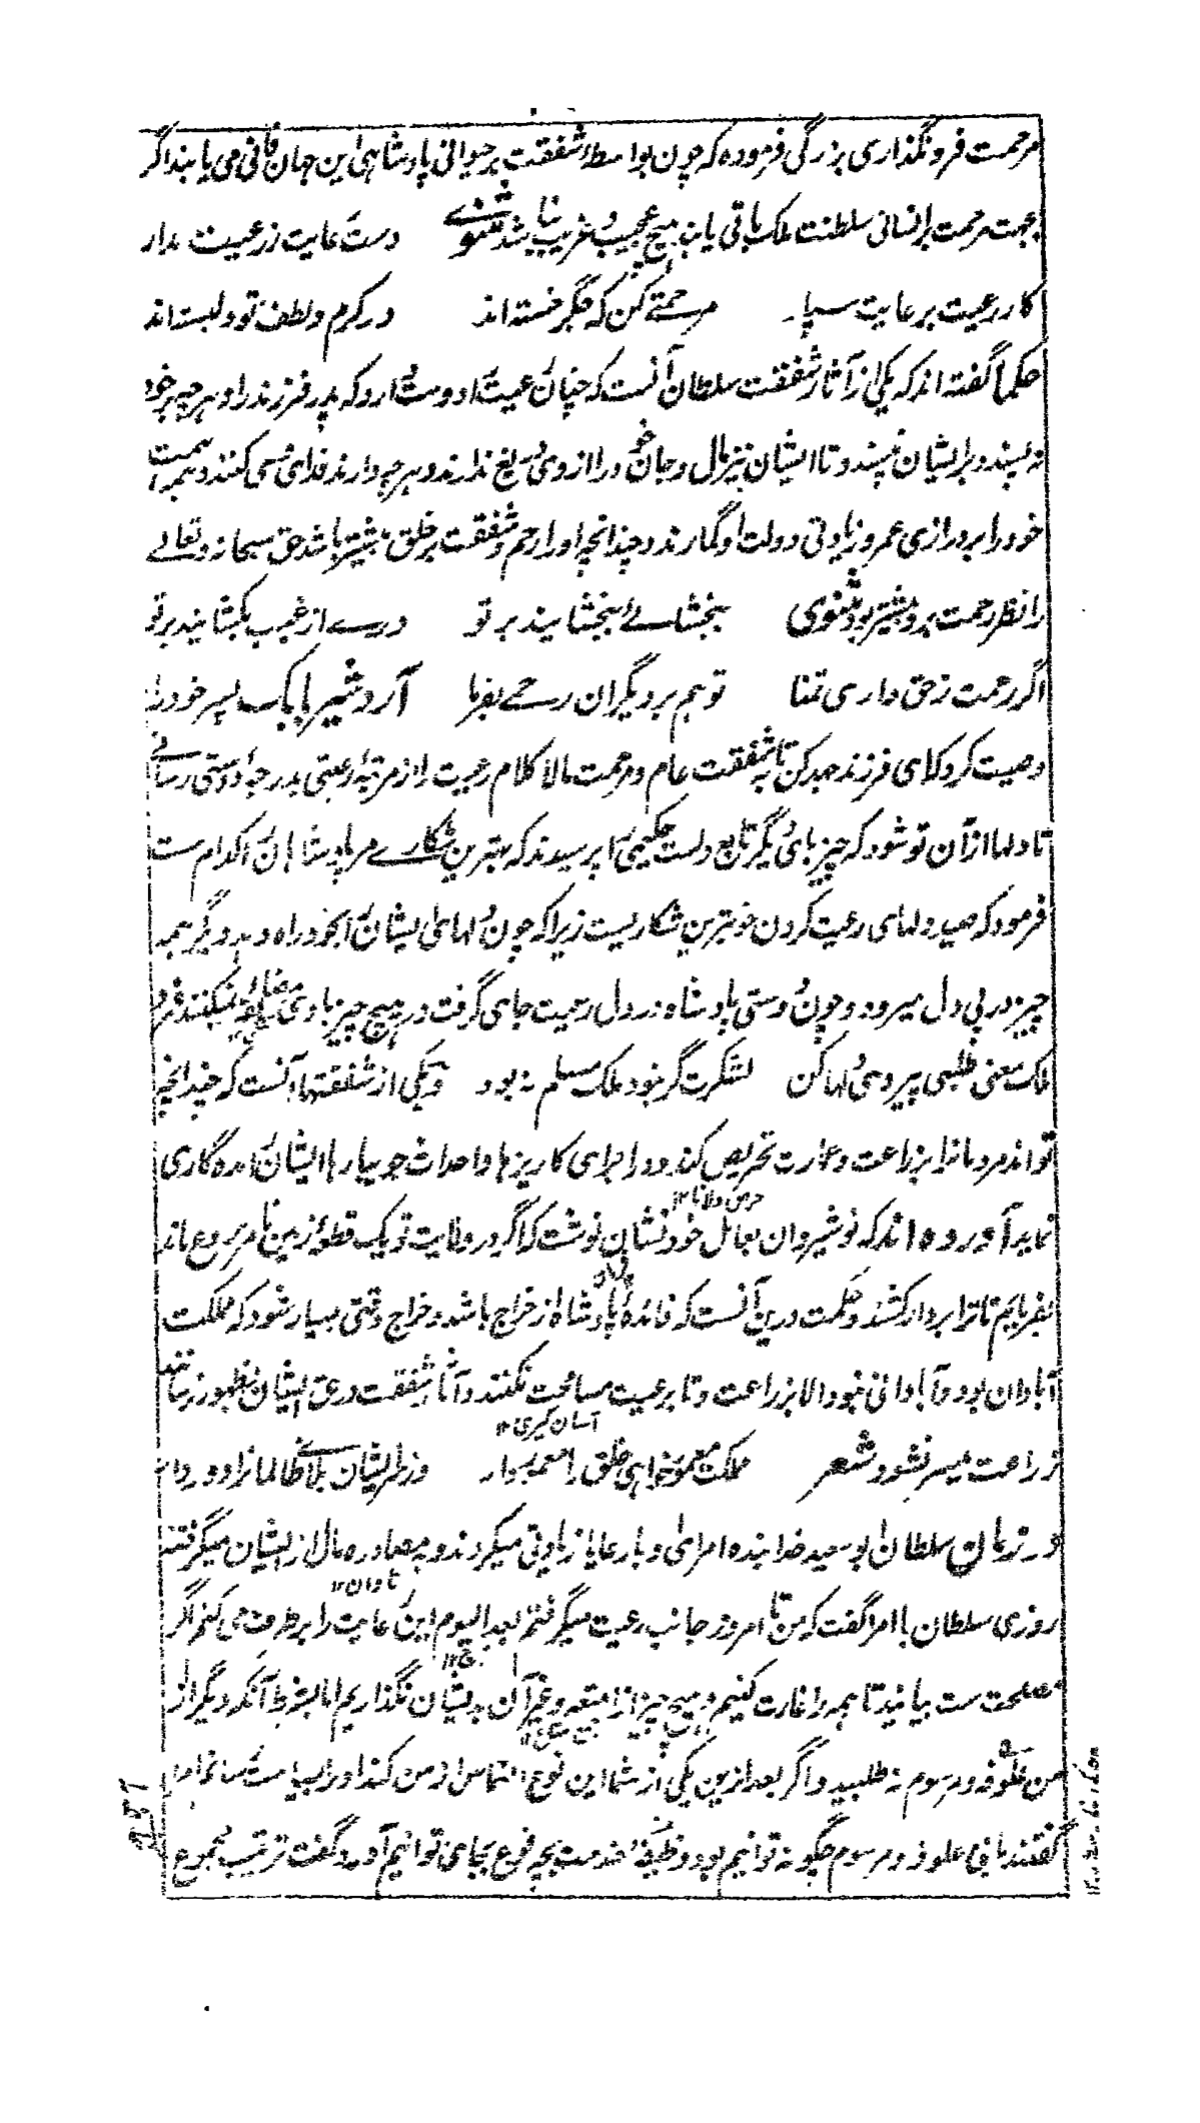 مرحمت فرو نگذاری بزرگی فرموده که چون بواسطهٔ شفقت بر حیوانی پادشاهی این جهان فانی می یابند اگر
بجهت مرحمت بر انسانی سلطنت ملک باقی یابند هیچ عجیب و غریب نباشد مثنوی دست رعایت ز رعیت مدار
کار رعیت برعایت سپار مرحمتے کن که جگر خسته اند در کرم و لطف تو دل بسته اند
حکما گفته اند که یکی از آثار شفقت سلطان آنست که چنان رعیت را دوست دارد که پدر فرزند را و هر چه بر خود
نه پسندد بر ایشان نپسندد تا ایشان نیز مال و جان خود را از وی دریغ ندارند و هر چه دارند فدای وی کنند و همه همت
خود را بر درازی عمر و زیادتی دولت او گمارند و چندانچه او را رحم و شفقت بر خلق بیشتر باشد حق سبحانه و تعالے
را نظر رحمت برو بیشتر بود مثنوی ببخشاے ببخشایند بر تو درے از غیب بکشایند بر تو
اگر رحمت ز حق داری تمنا تو هم بر دیگران رحمے بفرما آردشیر بابک پسر خود را
وصیت کرد که ای فرزند جهد کن تا بشفقت عام و مرحمت مالا کلام رعیت را از مرتبهٔ رعیتی بدرجهٔ دوستی رسانے
تا دلها از آن تو شود که چیزهای دیگر تابع دلست حکیمی را پرسیدند که بهترین شکارے مر پادشاهان را کدام ست
فرمود که صید دلهای رعیت کردن خوبترین شکاریست زیرا که چون دلهای ایشان را بخود راه دهد دیگر همه
چیز در پی دل میرود و چون دوستی پادشاه در دل رعیت جای گرفت در هیچ چیز با وی مضایقه نمیکنند فرد
ملک معنی طلبی پیروی دلها کن لشکرت گر نبود ملک مسلم نبود و یکی از شفقتها آنست که چندانچه
تواند مردمانرا بزراعت و عمارت تحریص کند و در اجرای کاریزها و احداث جویبارها ایشان را مددگاری
حرص دلانا ۱۲
نماید آورده اند که نوشیروان بعامل خود نشان نوشت که اگر در ولایت تو یک قطعه زمین نامزروع ماند
بفرمایم تا ترا بردار کشند و حکمت درین آنست که فائدهٔ پادشاه از خراج باشد و خراج وقتی بسیار شود که مملکت
آبادان بود و آبادانی نبود الا بزراعت و تا برعیت مسامحت نکنند و آثار شفقت در حق ایشان بظهور نرسانند
آسان گیری ۱۲
زراعت میسر نشود شعر مملکت معمور خواهی خلق را معمور دار وز سر ایشان بلائے ظالمانرا دور دار
در زمان سلطان ابو سعید خدا بنده امرای او با رعایا زیادتی میکردند و بمصادره مال از ایشان میگرفتند
تاوان ۱۲
روزی سلطان با امرا گفت که من تا امروز جانب رعیت میگرفتم بعد الیوم این رعایت را بر طرف می کنم اگر
مصلحت ست بیائید تا همه را غارت کنیم و هیچ چیز از امتعه و غیر آن بدیشان نگذاریم اما بشرط آنکه دیگر از
من علوفه و مرسوم نه طلبید و اگر بعد ازین یکی از شما این نوع التماس از من کند او را سیاست رسانم امرا
گفتند ما بی علوفه و مرسوم چگونه توانیم بود و وظیفهٔ خدمت بچه نوع بجای توانیم آورد گفت ترتیب مجموع